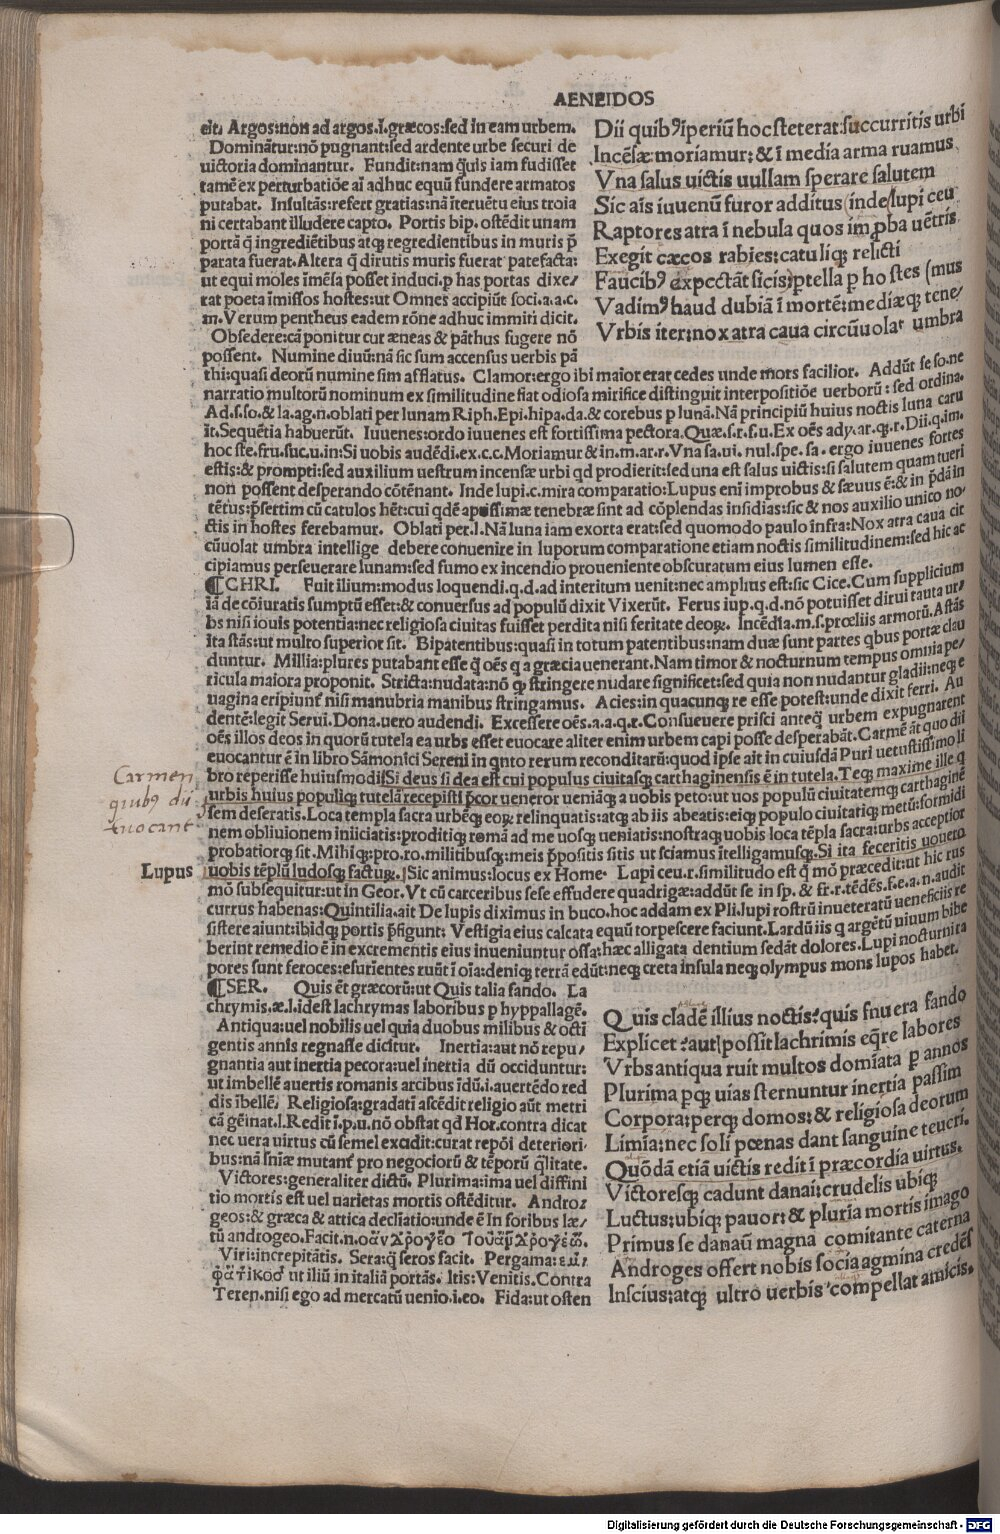 AENEIDOS
cit. Argos:non ad argos.i.græcos:sed in eam urbem.
Dominãtur:nõ pugnant:sed ardente urbe securi de
uictoria dominantur. Fundit:nam q̃uis iam fudisset
tamẽ ex perturbatiõe aĩ adhuc equũ fundere armatos
putabat. Insultãs:refert gratias:nã ĩteruẽtu eius troia
ni certabant illudere capto. Portis bip. ostẽdit unam
portã q̃ ingrediẽtibus atqꝫ regredientibus in muris p̃
parata fuerat. Altera q̃ dirutis muris fuerat patefacta:
ut equi moles ĩmẽsa posset induci.p has portas dixe/
rat poeta ĩmissos hostes:ut Omnes accipiũt soci.a.a.c.
m. Verum pentheus eadem rõne adhuc immiti dicit.
Obsedere:cã ponitur cur æneas & pãthus fugere nõ
possent. Numine diuũ:nã sic sum accensus uerbis pã
thi:quasi deorũ numine sim afflatus. Clamor:ergo ibi maior erat cedes unde mors facilior. Addũt se so.ne
narratio multorũ nominum ex similitudine fiat odiosa mirifice distinguit interpositiõe uerborũ: sed ordina.
Ad.s.so.& la.ag.ñ.oblati per lunam Riph.Epi.hipa.da.& corebus p lunã. Nã principiũ huius noctis luna caru
ĩt. Sequẽtia habuerũt. Iuuenes:ordo iuuenes est fortissima pectora.Quæ.s.r.f.u.Ex oẽs ady.ar.q̃.r.Dii.q.im.
hoc ste.fru.suc.u.in:Si uobis audẽdi.ex.c.c.Moriamur & in.m.ar.r.Vna sa.ui.nul.spe.sa. ergo iuuenes fortes
estis:& prompti:sed auxilium uestrum incensæ urbi qd prodierit:sed una est salus uictis:si salutem quam tueri
non possent desperando cõtẽnant. Inde lupi.c.mira comparatio:Lupus eni improbus & sæuus ẽ:& in p̃dã in
tẽtus:p̃sertim cũ catulos hẽt:cui qdẽ aptissimæ tenebræ sint ad cõplendas insidias:sic & nos auxilio unico no/
ctis in hostes ferebamur. Oblati per.l.Nã luna iam exorta erat:sed quomodo paulo infra:Nox atra caua cir
cũuolat umbra intellige debere conuenire in luporum comparatione etiam noctis similitudinem:sed hic ac
cipiamus perseuerare lunam:sed fumo ex incendio proueniente obscuratum eius lumen esse.
¶CHRI. Fuit ilium:modus loquendi.q.d.ad interitum uenit:nec amplius est:sic Cice.Cum supplicium
iã de cõiuratis sumptũ esset:& conuersus ad populũ dixit Vixerũt. Ferus iup.q.d.nõ potuisset dirui tauta ur/
bs nisi iouis potentia:nec religiosa ciuitas fuisset perdita nisi feritate deoꝝ. Incẽdia.m.s.prœliis armorũ.Astãs
ita stãs:ut multo superior sit. Bipatentibus:quasi in totum patentibus:nam duæ sunt partes qbus portæ clau
duntur. Millia:plures putabant esse q̃ oẽs q a græcia uenerant.Nam timor & nocturnum tempus omnia pe/
ricula maiora proponit. Stricta:nudata:nõ qꝫ stringere nudare significet:sed quia non nudantur gladii:neqꝫ e
uagina eripiunt̃ nisi manubria manibus stringamus. Acies:in quacunqꝫ re esse potest:unde dixit ferri. Au
dentẽ:legit Serui.Dona.uero audendi. Excessere oẽs.a.a.q.r.Consueuere prisci anteq̃ urbem expugnarent
oẽs illos deos in quorũ tutela ea urbs esset euocare aliter enim urbem capi posse desperabãt.Carmẽ at̃ quo dii
euocantur ẽ in libro Sãmonici Sereni in qnto rerum reconditarũ:quod ipse ait in cuiusdã Puri uetustissimo li
bro reperisse huiusmodi|Si deus si dea est cui populus ciuitasqꝫ carthaginensis ẽ in tutela.Teqꝫ maxime ille q
urbis huius populiqꝫ tutelã recepisti p̃cor ueneror ueniãqꝫ a uobis peto:ut uos populũ ciuitatemqꝫ carthaginẽ
sem deseratis.Loca templa sacra urbẽqꝫ eoꝝ relinquatis:atqꝫ ab iis abeatis:eiqꝫ populo ciuitatiqꝫ metũ:formidi
nem obliuionem iniiciatis:proditiqꝫ romã ad me uosqꝫ ueniatis:nostraqꝫ uobis loca tẽpla sacra:urbs acceptior
probatiorqꝫ sit.Mihiqꝫ:pro.ro.militibusqꝫ:meis p̃positis sitis ut sciamus ĩtelligamusqꝫ.Si ita feceritis uouero
uobis tẽplũ ludosqꝫ facturꝝ.|Sic animus:locus ex Home. Lupi ceu.r.similitudo est q̃ mõ præcedit:ut hic rus
mõ subsequitur:ut in Geor.Vt cũ carceribus sese effudere quadrigæ:addũt se in sp. & fr.r.tẽdẽs.f.e.a.n.audit
currus habenas:Quintilia.ait De lupis diximus in buco.hoc addam ex Pli.lupi rostrũ inueteratũ ueneficiis re
sistere aiunt:ibidqꝫ portis p̃figunt: Vestigia eius calcata equũ torpescere faciunt.Lardũ iis q argẽtũ uiuum bibe
berint remedio ẽ in excrementis eius inueniuntur ossa:hæc alligata dentium sedãt dolores.Lupi nocturnita
pores sunt feroces:esurientes ruũt ĩ oĩa:deniqꝫ terrã edũt:neqꝫ creta insula neqꝫ olympus mons lupos habet.
Carmen
quibꝰ dii
euocant
Lupus
¶SER. Quis ẽt græcorũ:ut Quis talia fando. La
chrymis.æ.l.idest lachrymas laboribus p hyppallagẽ.
Antiqua:uel nobilis uel quia duobus milibus & octi
gentis annis regnasse dicitur. Inertia:aut nõ repu/
gnantia aut inertia pecora:uel inertia dũ occiduntur:
ut imbellẽ auertis romanis arcibus ĩdũ.i.auertẽdo red
dis ĩbellẽ. Religiosa:gradatĩ ascẽdit religio aũt metri
cã gẽinat.l.Redit ĩ.p.u.nõ obstat qd Hor.contra dicat
nec uera uirtus cũ semel excidit:curat repõi deteriori-
bus:nã sniæ mutant̃ pro negociorũ & tẽporũ q̃litate.
Victores:generaliter dictũ. Plurima:ima uel diffini
tio mortis est uel uarietas mortis ostẽditur. Andro/
geos:& græca & attica decliatio:unde ẽ In foribus læ/
tũ androgeo.Facit.n.ὁἀνδρόγεο τοῦἀνδρόγεω.
Viri:increpitãtis. Sera:q̃ seros facit. Pergama:ἐμ
φατικοσ ut iliũ in italiã portãs. Itis:Venitis.Contra
Teren.nisi ego ad mercatũ uenio.i.eo. Fida:ut osten
Dii quibꝰ ĩperiũ hoc steterat:succurritis urbi
Incẽsæ:moriamur:& ĩ media arma ruamus
Vna salus uictis uullam sperare salutem
Sic aĩs iuuenũ furor additus (inde/lupi ceu
Raptores atra ĩ nebula quos improba uẽtris
Exegit cæcos rabies:catuliqꝫ relicti
Faucibꝰ expectãt siccis:ptella p hostes (mus
Vadimꝰ haud dubiã ĩ mortẽ:mediæqꝫ tene/
Vrbis iter:nox atra caua circũuolat umbra
Quis cladẽ illius noctis:quis fnuera fando
Explicet:aut possit lachrimis eq̃re labores
Vrbs antiqua ruit multos domĩata p annos
Plurima pqꝫ uias sternuntur inertia passim
Corpora:perqꝫ domos:& religiosa deorum
Limĩa:nec soli pœnas dant sanguine teucri.
Quõdã etiã uictis redit ĩ præcordia uirtus.
Victoresqꝫ cadunt danai:crudelis ubiqꝫ
Luctus:ubiqꝫ pauor:& pluria mortis imago
Primus se danaũ magna comitante caterna
Androges offert nobis socia agmina credẽs
Inscius:atqꝫ ultro uerbis compellat amicis.
Digitalisierung gefördert durch die Deutsche Forschungsgemeinschaft - DFG